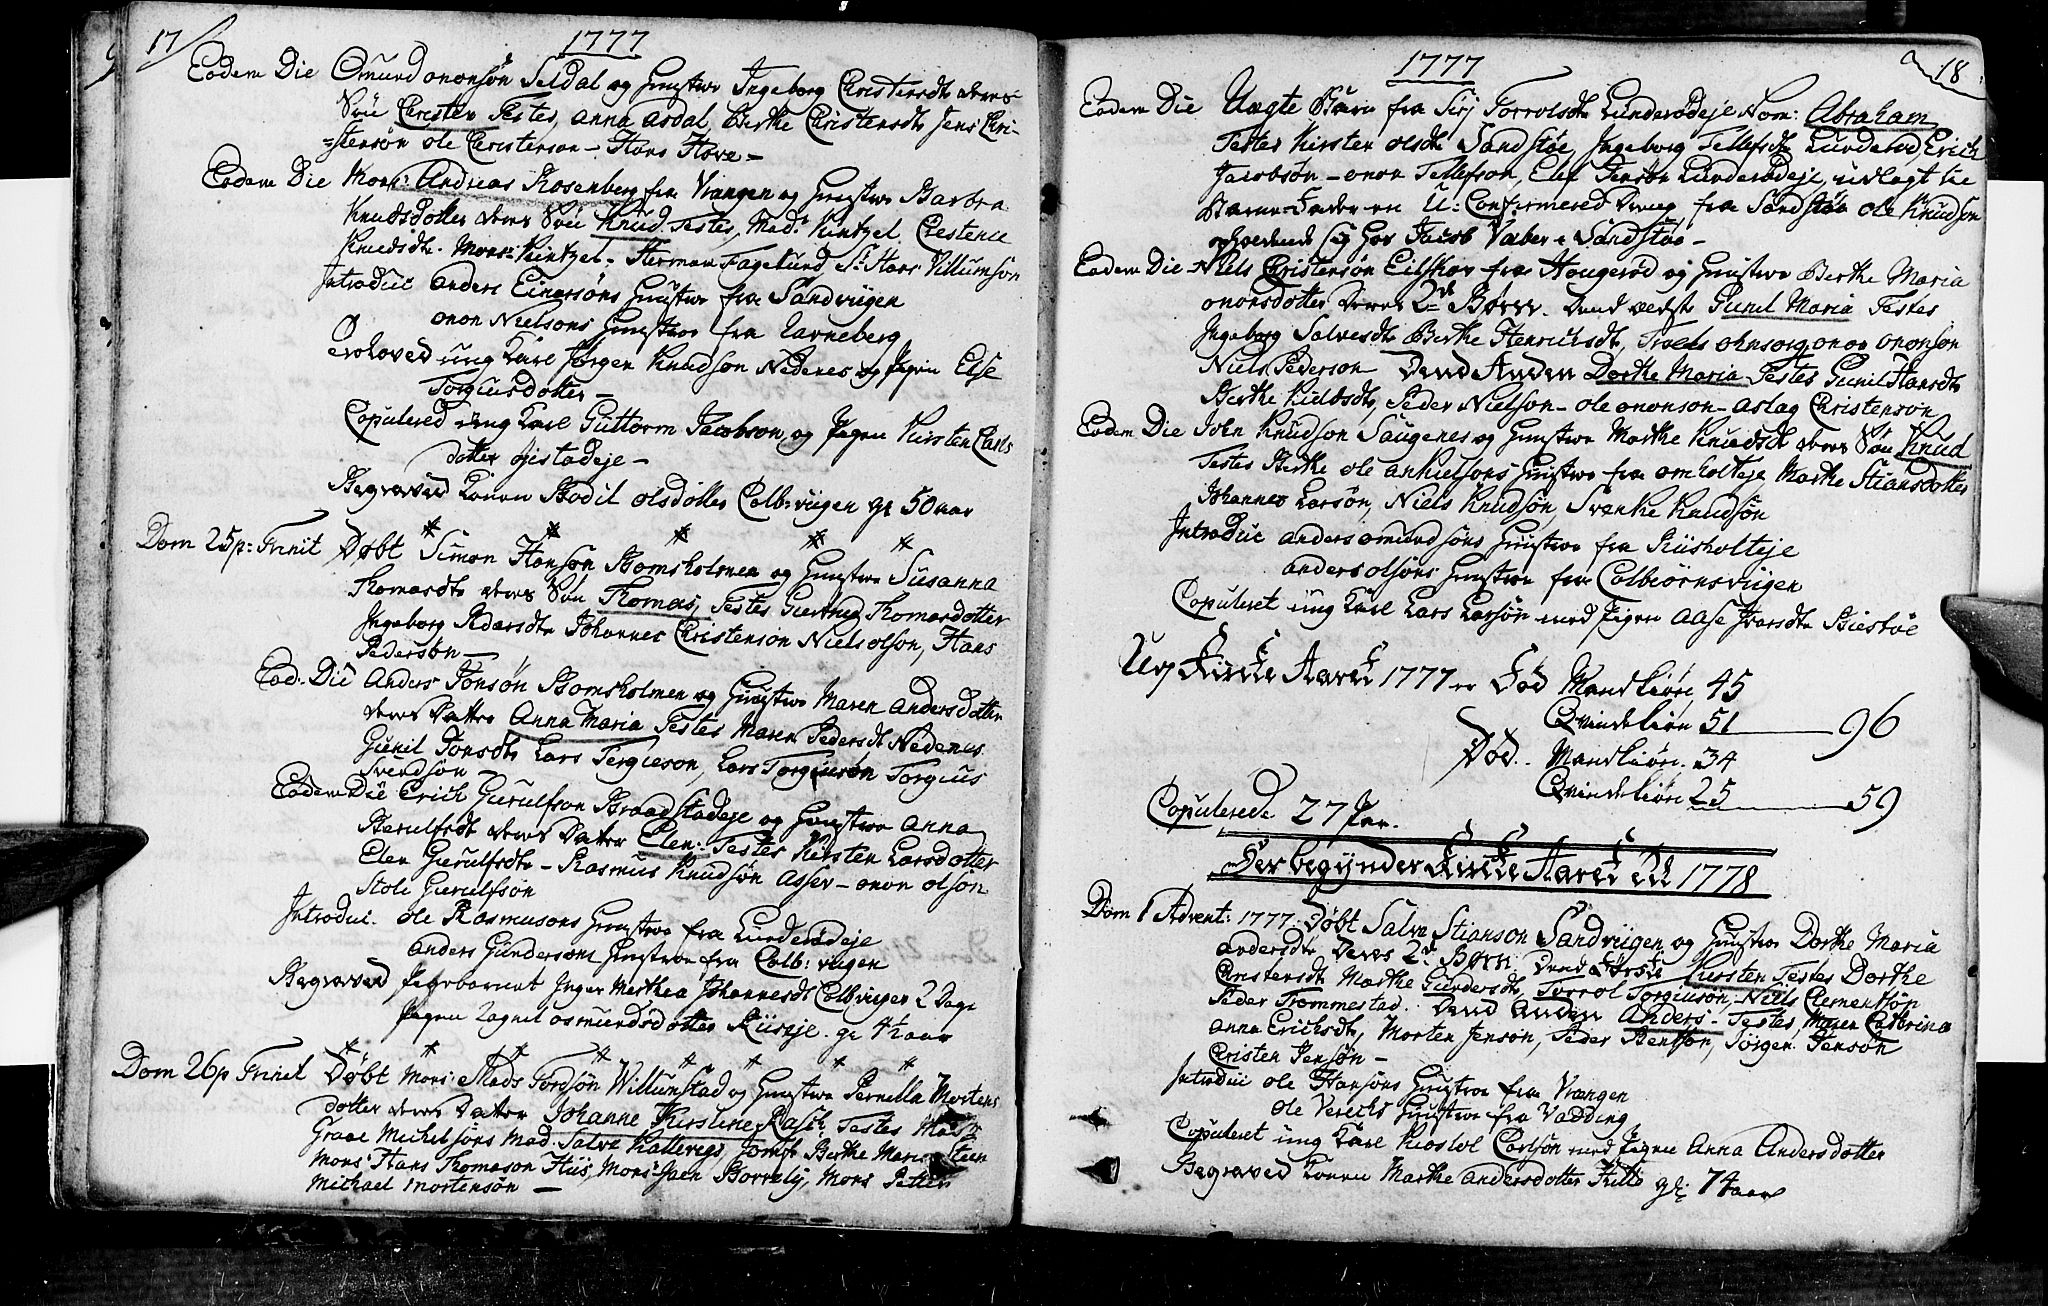 17
1777
Eodem Die Omund ononsøn Seldal og Hustroe Ingeborg Christensdt deres
Søn Christen Testes, Anna Asdal, Berthe Christensdt Jens Chri-
=stensøn ole Christenson - Hans Hove -
Eodem Die Mons: Andreas Rosenberg fra Vrangen og Hustroe Barbra
Knudsdotter deres Søn Knud Testes, Mad: Kintzel Chestence
Knudsdt. Mons: Kintzel. Herman Fagelund Sr Hans Villumsøn
Introduc Anders Einersøns Hustroe fra Sandviigen
onon Nielsons Hustroe fra Tarneberg
Troloved ung Karl Jørgen Knudsøn Nedenes og Pigen Else
Torgiusdotter -
Copulered ung Karl Guttorm Jacobson og Pigen Kirsten Carls
dotter øjestadeje -
Begraved Konen Bodil olsdotter Colb:viigen gl 50 aar
Dom 25 p: Trinit Døbt Simon Hanson Bomsholmen og Hustroe Susanna
Thomasdt deres Søn Thomas, Testes Giertrud Thomasdotter
Ingeborg Pedersdt Johannes Christensøn Niels olson, Hans
Pedersøn -
Eod: Die Anders Jonsøn Bomsholmen og Hustroe Maren Andersdotter
deres Datter Anna Maria Testes Maren Pedersdt Nedenes
Gunil Jonsdt Lars Tergieson, Lars Torgiusøn Torgius
Svendsøn -
Eodem Die Erich Gurulfson Braadstadeje og Hustroe Anna
Berulfsdt deres Datter Elen: Testes Kirsten Larsdotter
Elen Gerulfsdt - Rasmus Knudsøn Asser - onon olsøn
Stoli Gurulfsøn
Introduc. ole Rasmusons Hustroe fra Lunderødeje
Anders Gundersons Hustroe fra Colb: viigen
Begraved Pigebarnet Inger Merthea Johannesdt Colbviigen 2 Dage
Pigen Lagnil osmundsdotter Riiseje. gl 4½ aar
Dom 26 p Trinit Døbt Mons: Mads Tordsøn Willumstad og Hustroe Pernella Mortens
dotter deres Datter Johanne Kirstine Rasch Testes
Graae Michelsøns Mad. Salve Kallevigs Jomfr Berthe Maria Steen
Mons: Hans Thomason Hiis, Mons: Jaen Borrely, Mons Petter
Michael Mortensøn -
18
1777
Eodem Die Uægte Barn fra Siri Torrolsdt Lunderødeje Nom: Abraham
Testes Kirsten olsdt Sandstøe, Ingeborg Tellefsdt Lunderød, Erich
Jacobsøn - onon Tellefson, Elef Jensøn Lunderødeje, udlagt til
Barne-Fader en U: Confirmered Dreng fra Sandstøe ole Knudsøn
opholdende sig hos Jacob Væber i Sandstøe -
Eodem Die Niels Christensøn Eilskov fra Hougerød og Hustroe Berthe Maria
ononsdotter deres 2de Børn. Dend ældste Gunil Maria Testes
Ingeborg Salvesdt Berthe Henrichsdt, Troels ohnsorg onon ononsøn
Niels Pederson Dend Anden Dorthe Maria Testes Gunil Hansdt
Berthe Kiebsdt, Peder Nielson - ole ononson - Aslag Christensøn
Eodem Die John Knudson Saugenes og Hustroe Marthe Knudsdt deres Søn Knud
Testes Berthe ole Ankielsøns Hustroe fra omholteje Marthe Stiansdotter
Johannes Larsøn, Niels Knudsøn, Svenke Knudsøn
Introduc Anders omundsøns Hustroe fra Riisholteje
Anders olsøns Hustroe fra Colbiørnsviigen
Copuleret ung Karl Lars Larsøn med Pigen Aase Ivarsdt Biestøe
Udj Kirke Aaret 1777 er Fød Mandkiøn 45
Qvindekiøn 51 96
Død. Mandkiøn. 34
Qvindekiøn 25 59
Copulerede 27 Par.
Her begynder Kirke Aaret til 1778
Dom 1 Advent: 1777. Døbt Salve Stianson Sandviigen og Hustroe Dorthe Maria
Andersdt deres 2de Børn. Dend første Kirsten Testes Dorthe
Christensdt Marthe Gundersdt, Torrol Torgiusøn, Niels Clementsøn
Peder Trommestad. Dend Anden Anders - Testes, Maren Cathrina
Anna Erichsdt, Morten Jensøn, Peder Bentson, Jørgen Jensøn
Christen Jensøn -
Introduc ole Hansøns Hustroe fra Vrængen
ole Verechs Hustroe fra Vadding
Copuleret ung Karl Kiostol Carlsøn med Pigen Anna Andersdotter
Begraved Konen Marthe Andersdotter gl: 74 aar